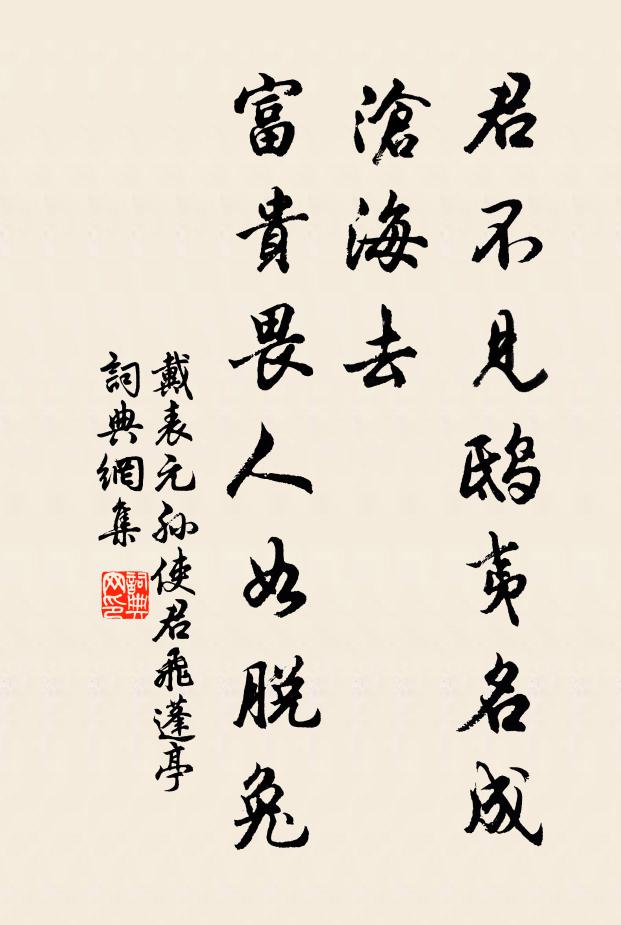 君不見鴟夷名成
滄海去
富貴畏人如脱兔
戴表元孫使君飛蓬亭
詞典網集
詞典网印